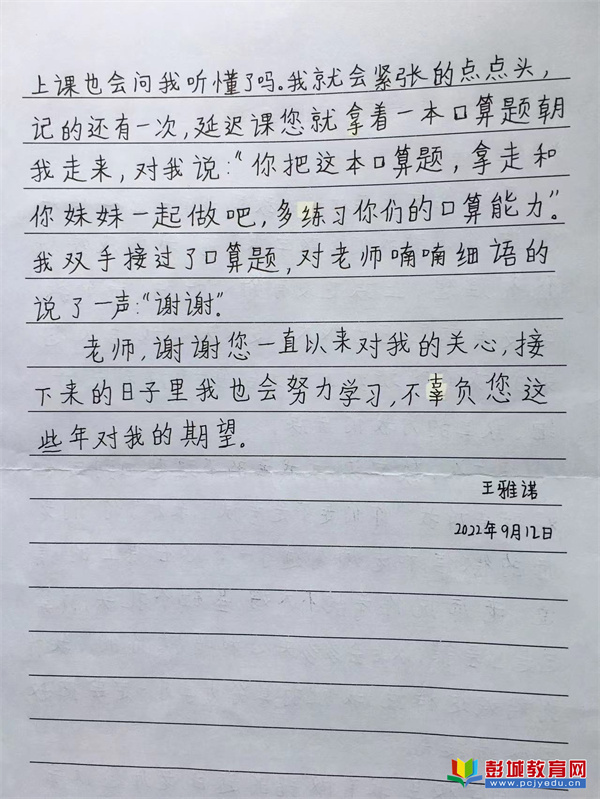 上课也会问我听懂了吗。我就会紧张的点点头,
记的还有一次,延迟课您就拿着一本口算题朝
我走来,对我说:“你把这本口算题,拿走和
你妹妹一起做吧,多练习你们的口算能力”。
我双手接过了口算题,对老师喃喃细语的
说了一声:“谢谢”。
老师,谢谢您一直以来对我的关心,接
下来的日子里我也会努力学习,不辜负您这
些年对我的期望。
王雅诺
2022年9月12日
彭城教育网
www.pcjyedu.cn